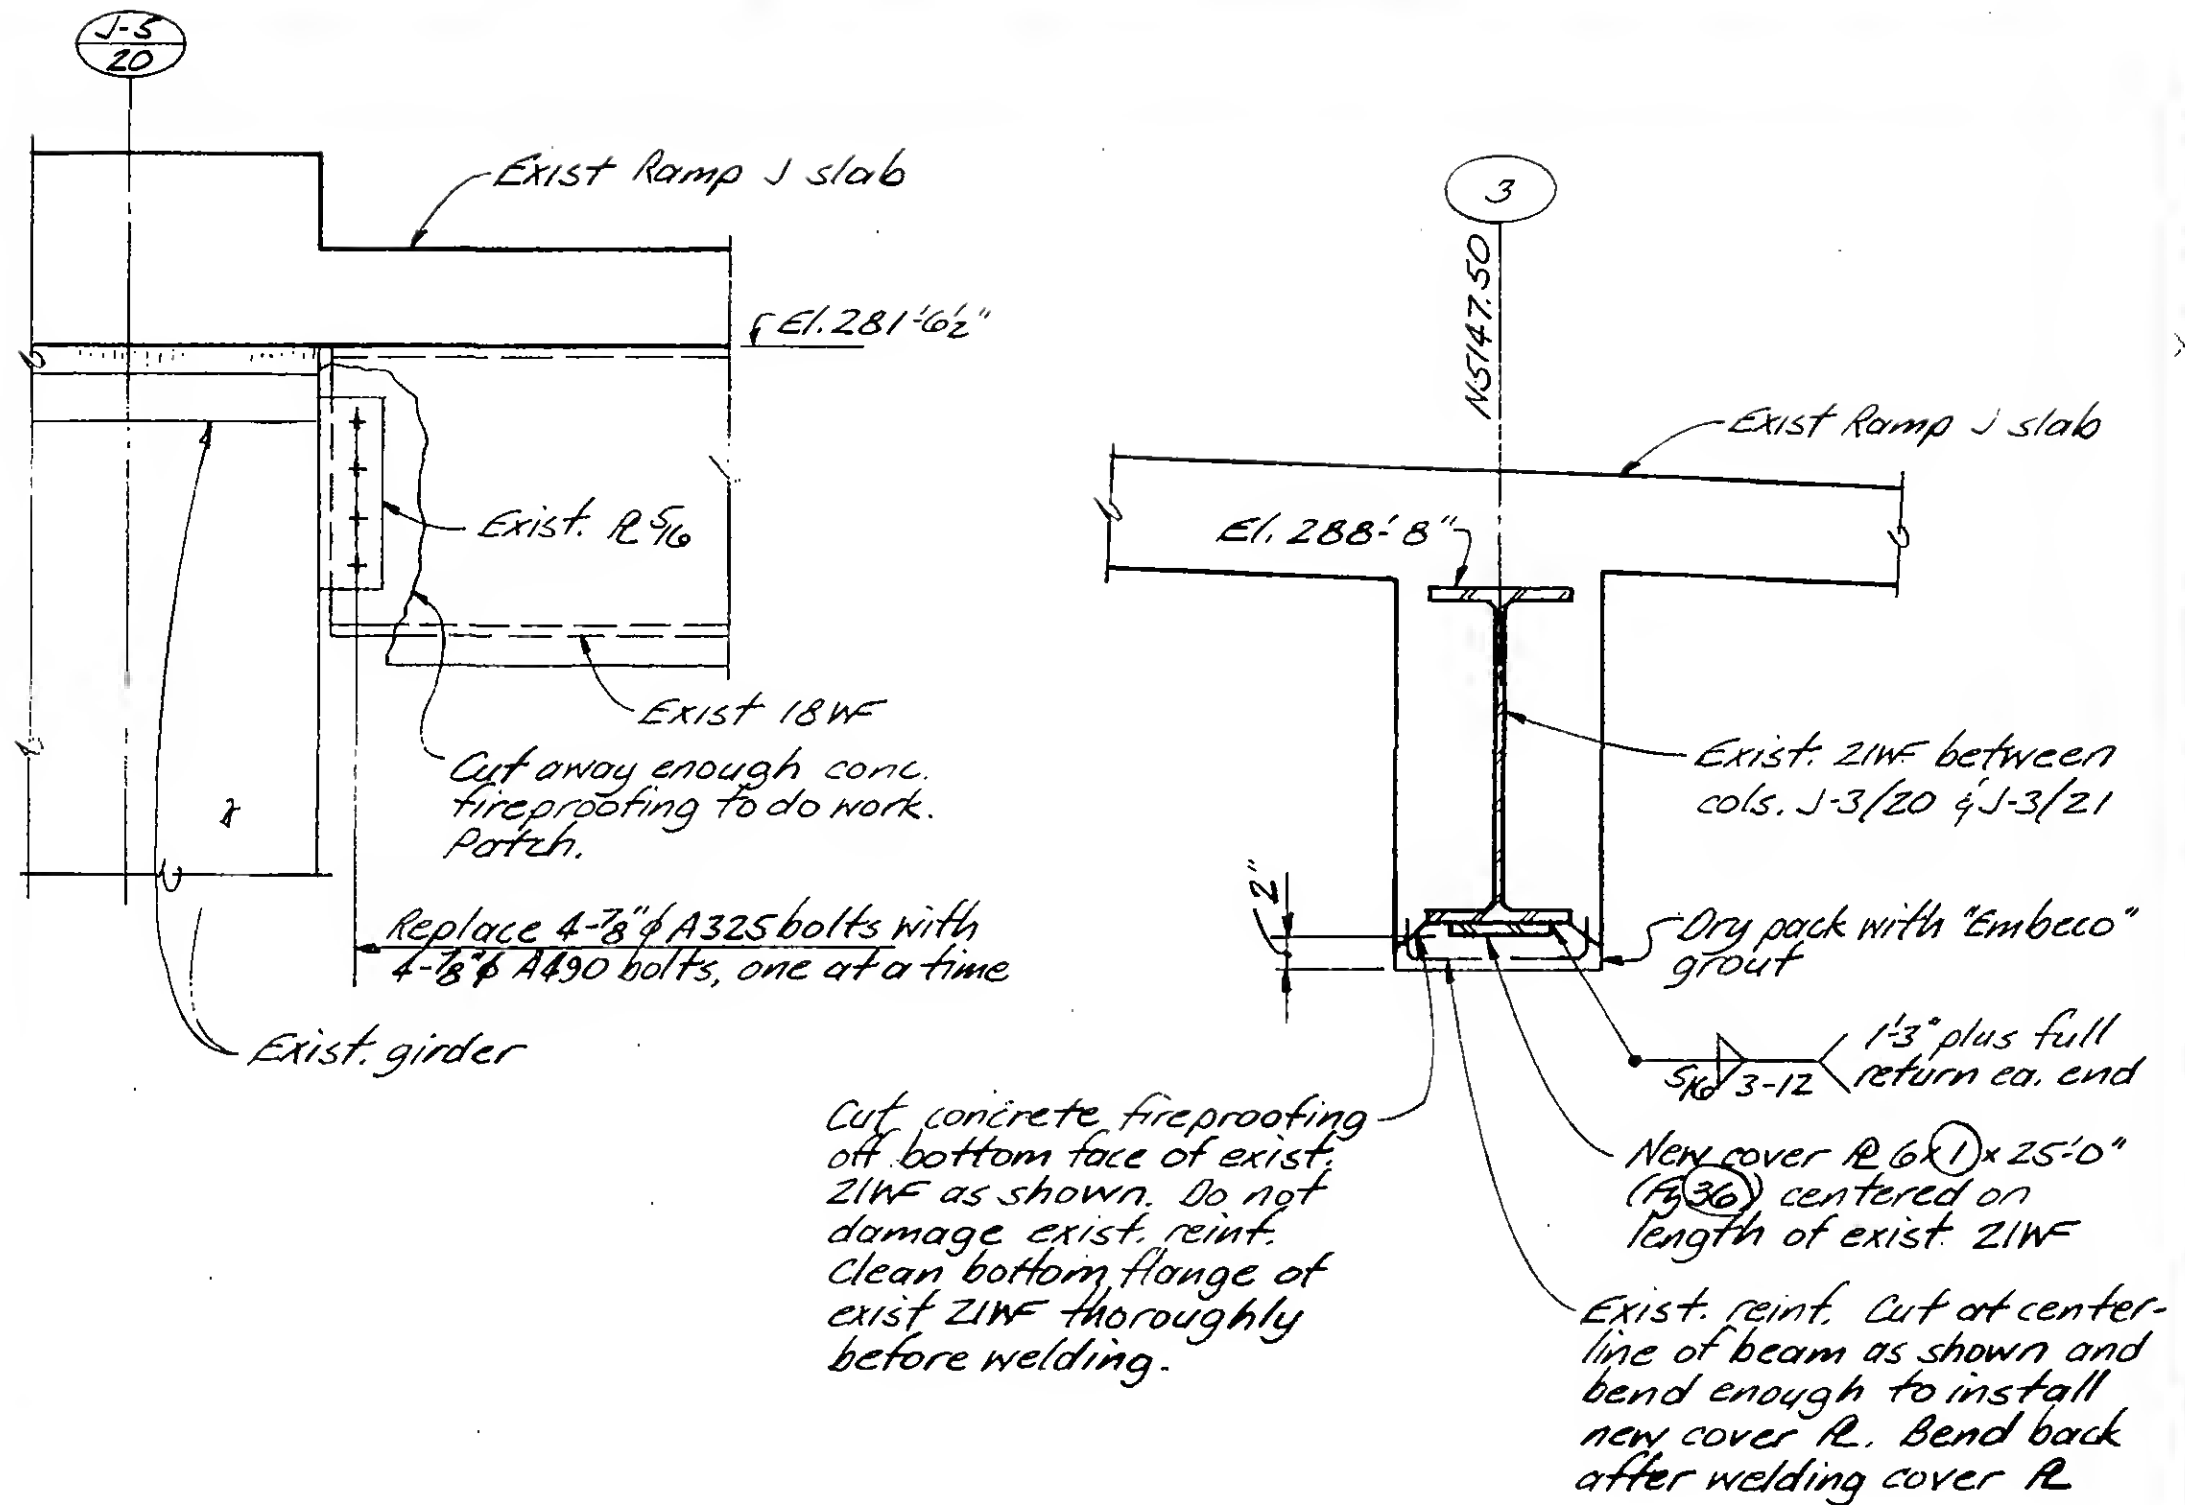 J-5
20
Exist Ramp J slab
El. 281'-6½"
Exist. ℞ 5/16
Exist 18WF
Cut away enough conc.
fireproofing to do work.
Patch.
Replace 4-7/8"φ A325 bolts with
4-7/8"φ A490 bolts, one at a time
Exist. girder
3
N5147.50
Exist Ramp J slab
El. 288'-8"
Exist. 21WF between
cols. J-3/20 & J-3/21
2"
Dry pack with "Embeco"
grout
1'-3" plus full
return ea. end
5/16 3-12
Cut concrete fireproofing
off bottom face of exist.
21WF as shown. Do not
damage exist. reinf.
Clean bottom flange of
exist 21WF thoroughly
before welding.
New cover ℞ 6x1x25'-0"
(Fy36) centered on
length of exist. 21WF
Exist. reinf. Cut at center-
line of beam as shown and
bend enough to install
new cover ℞. Bend back
after welding cover ℞